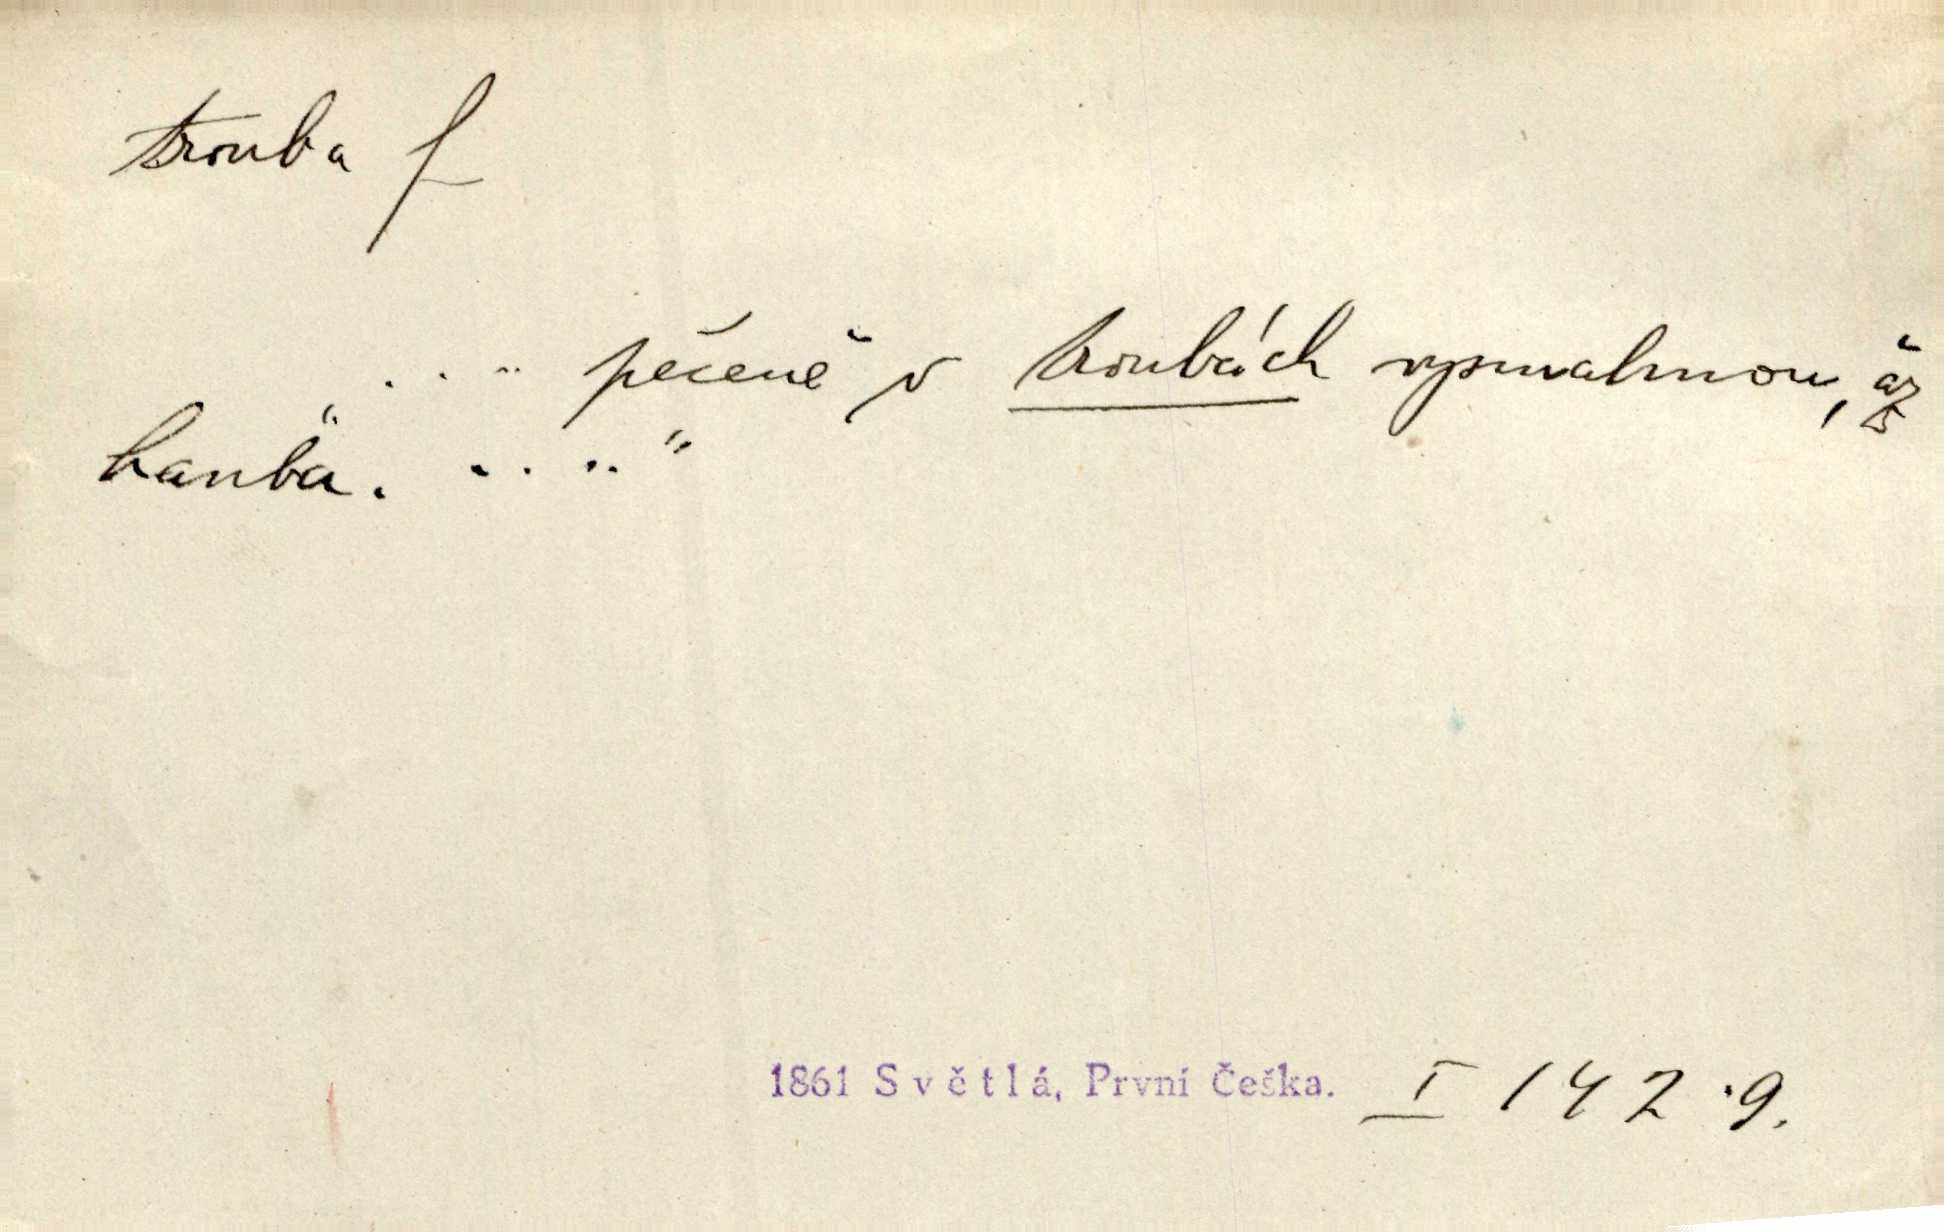 trouba f
.... pečeně v troubách vysmahnou, až
hanba. ...."
1861 Světlá, První Češka. I 142.9.